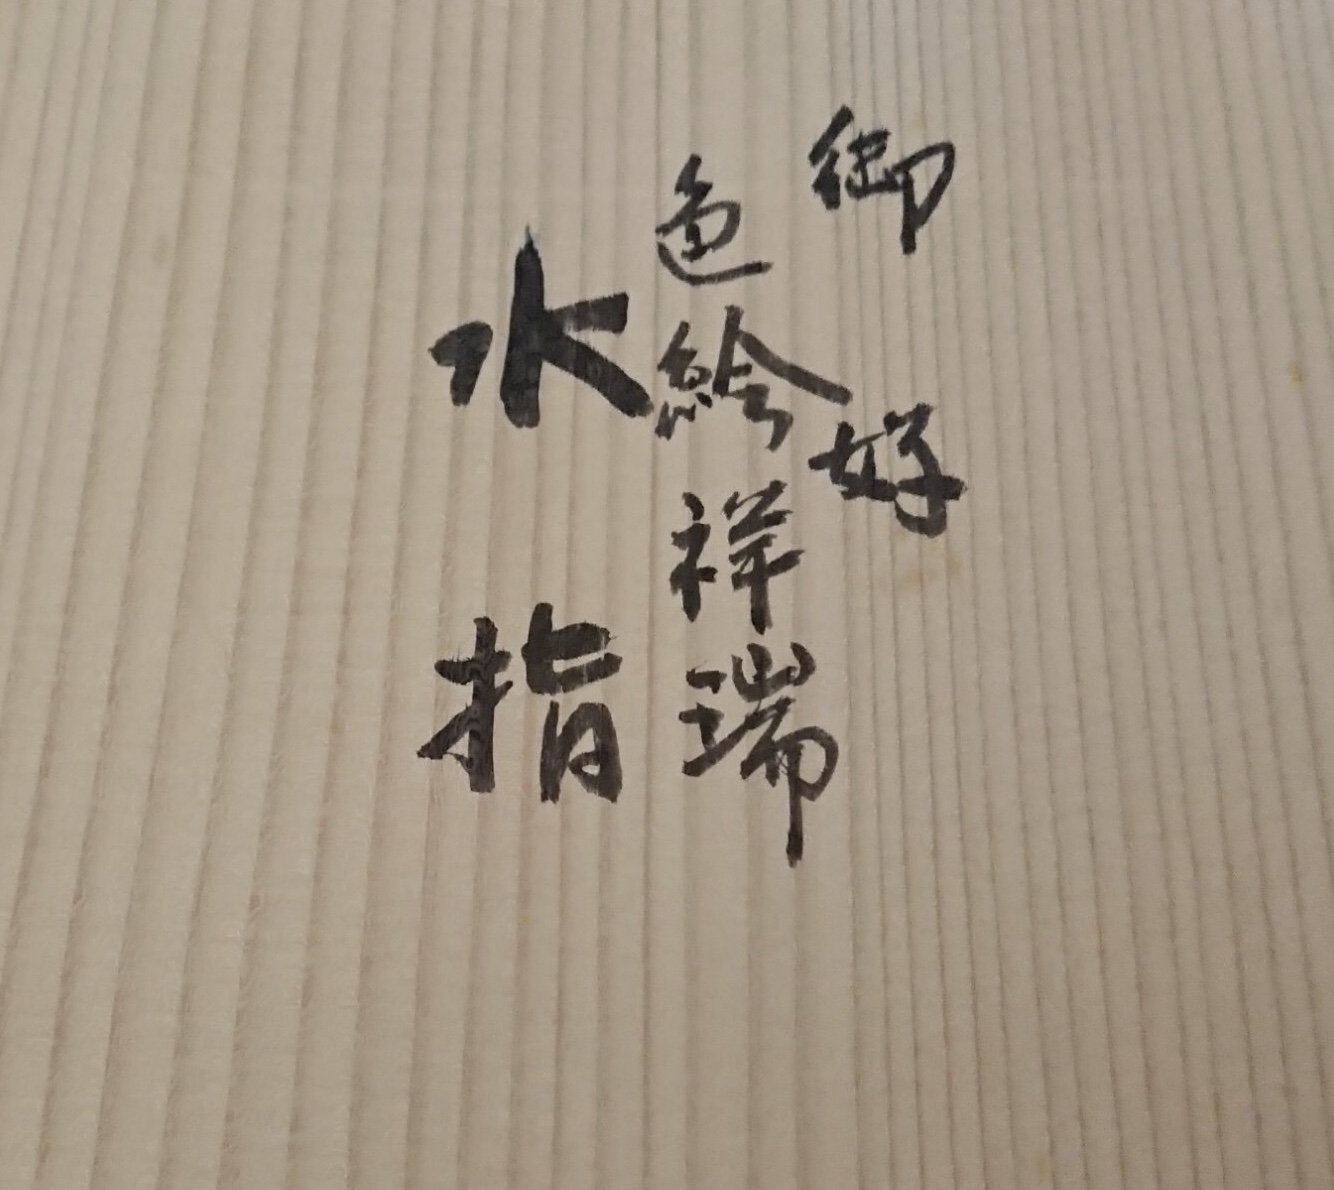 御好
色絵祥瑞
水指